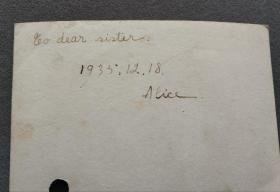 To dear sister.
1935.12.18.
Alice.